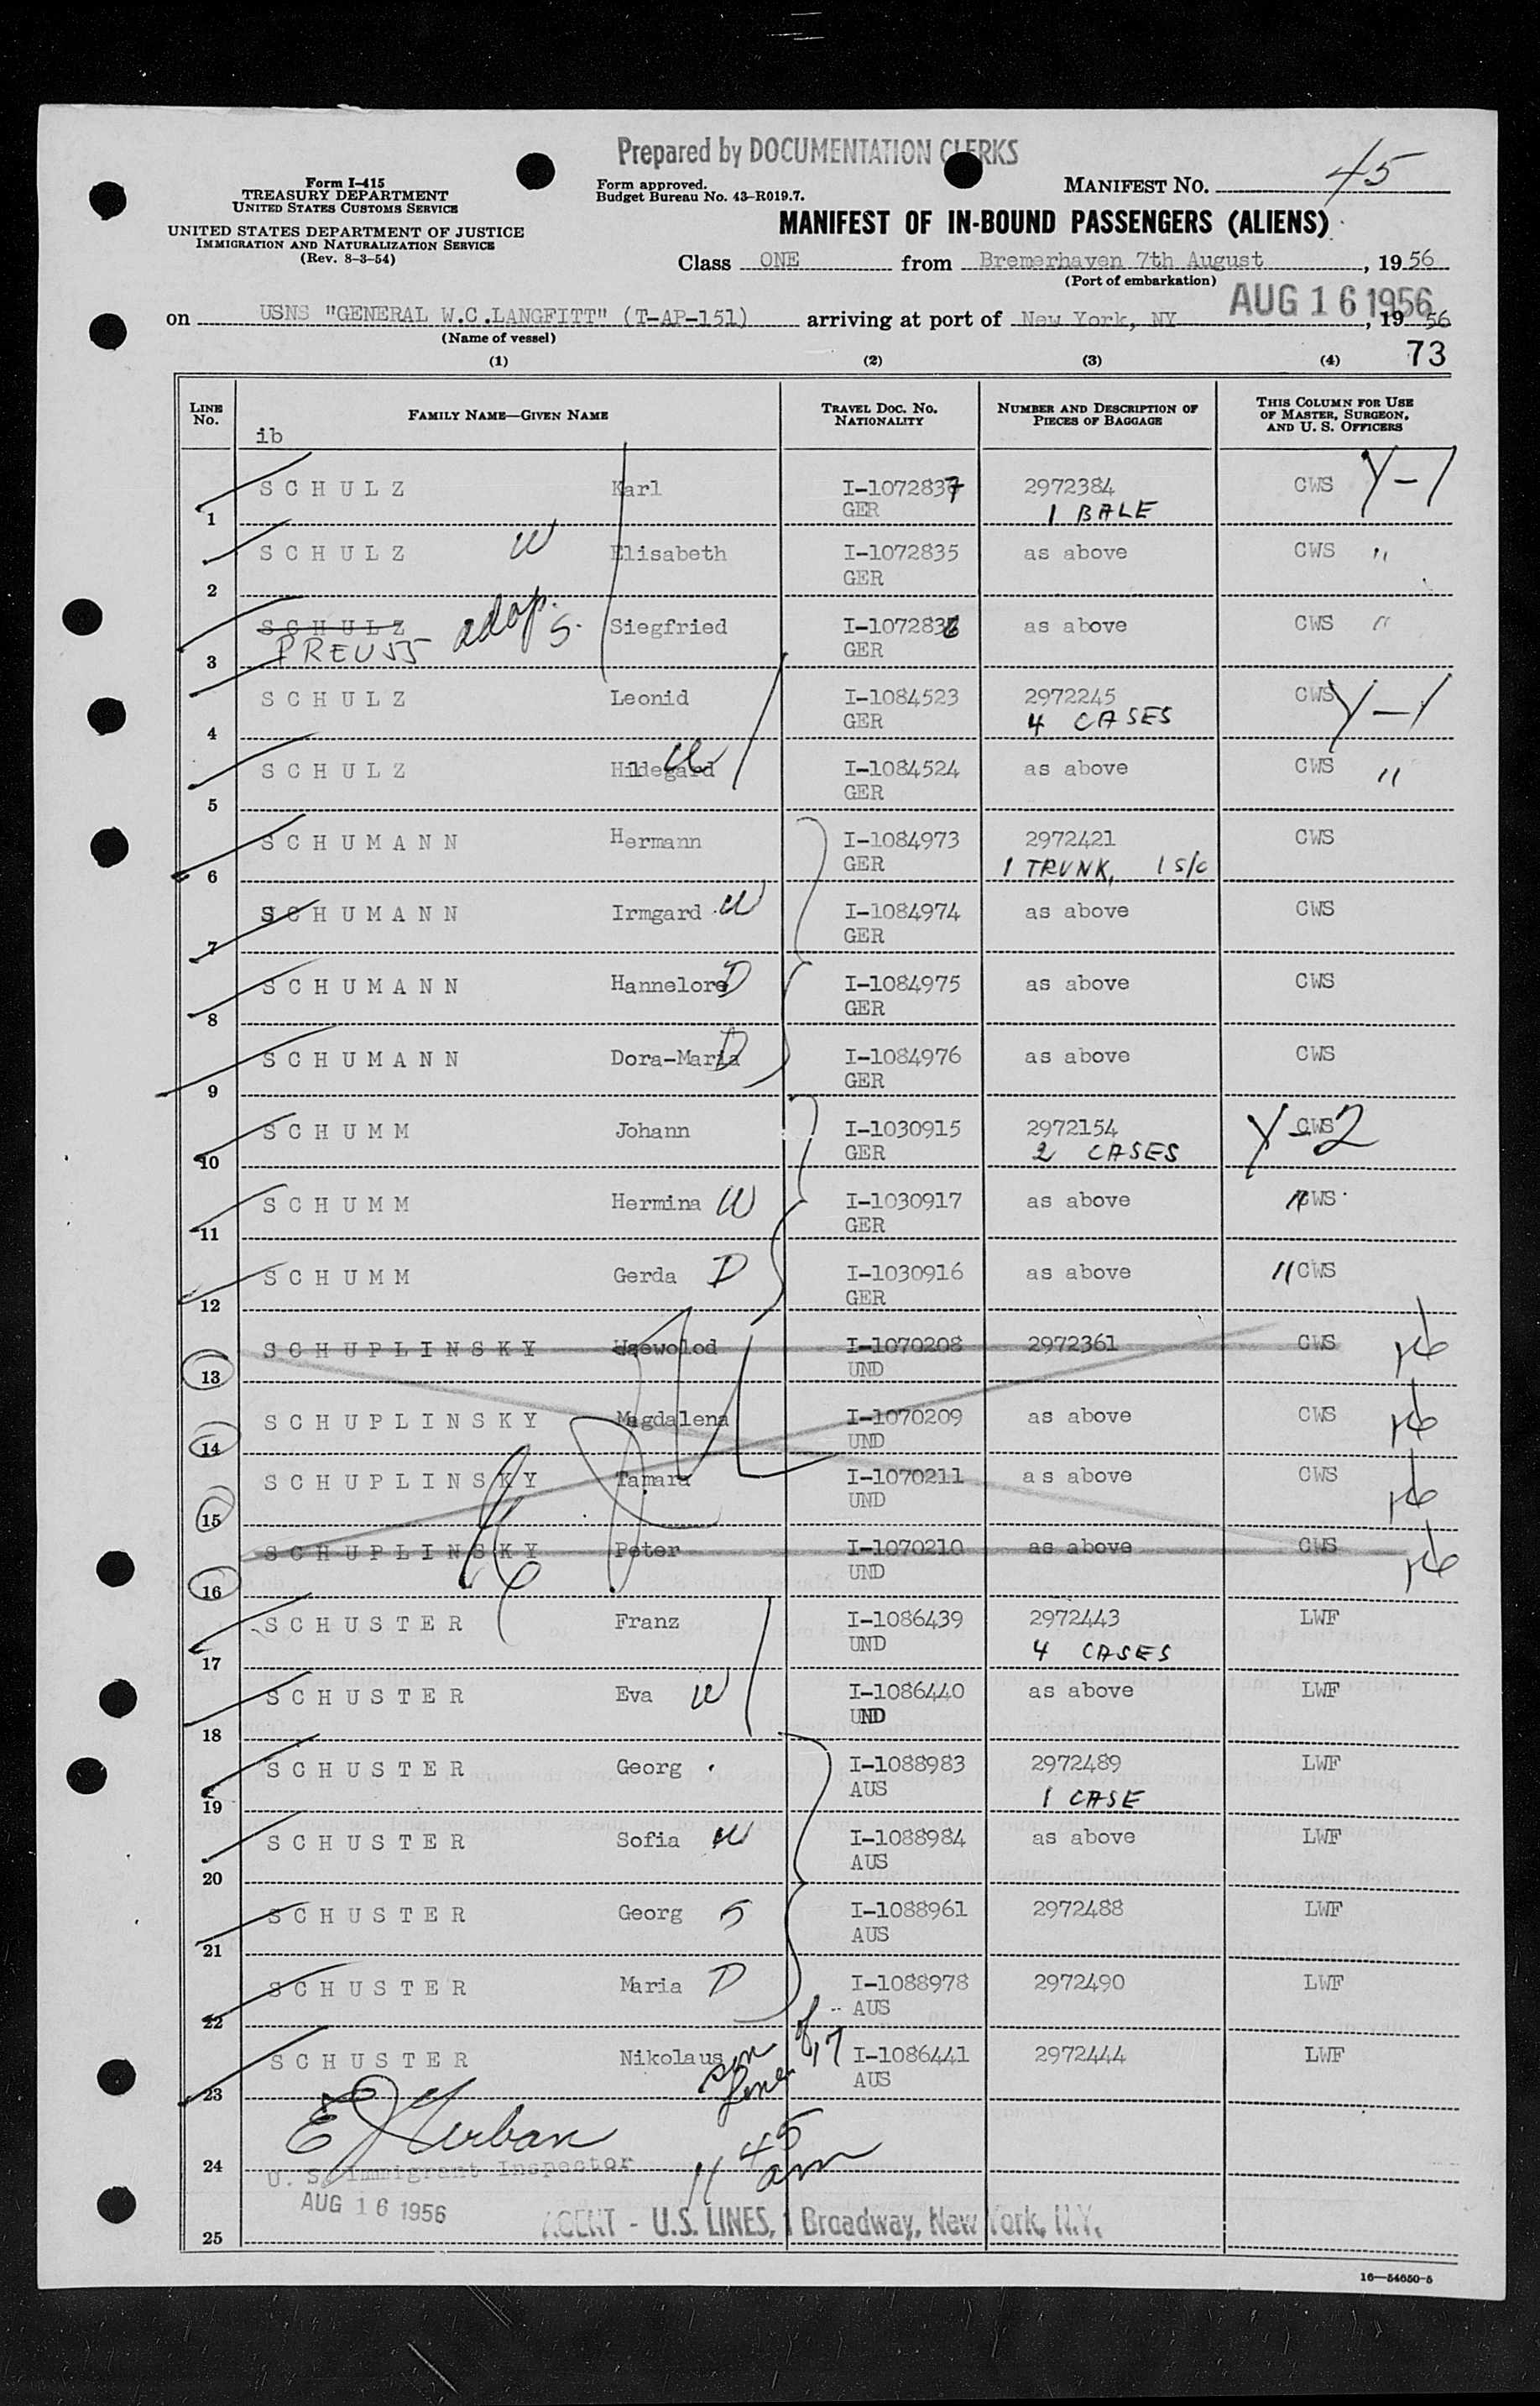 Prepared by DOCUMENTATION CLERKS
Form I-415
TREASURY DEPARTMENT
UNITED STATES CUSTOMS SERVICE
UNITED STATES DEPARTMENT OF JUSTICE
IMMIGRATION AND NATURALIZATION SERVICE
(Rev. 8-3-54)
Form approved.
Budget Bureau No. 43-R019.7.
MANIFEST NO. 45
MANIFEST OF IN-BOUND PASSENGERS (ALIENS)
Class ONE from Bremerhaven 7th August, 1956
(Port of embarkation)
AUG 16 1956
on USNS "GENERAL W.C.LANGFITT" (T-AP-151) arriving at port of New York, NY, 1956
(Name of vessel)
(1) (2) (3) (4) 73
LINE No. FAMILY NAME—GIVEN NAME TRAVEL DOC. NO. NATIONALITY NUMBER AND DESCRIPTION OF PIECES OF BAGGAGE THIS COLUMN FOR USE OF MASTER, SURGEON, AND U. S. OFFICERS
ib
1 SCHULZ Karl I-1072837 2972384 CWS Y-1
GER 1 BALE
2 SCHULZ W Elisabeth I-1072835 as above CWS "
GER
3 SCHULZ adop. S. Siegfried I-1072836 as above CWS "
PREUSS GER
4 SCHULZ Leonid I-1084523 2972245 CWS Y-1
GER 4 CASES
5 SCHULZ Hildegard W I-1084524 as above CWS "
GER
6 SCHUMANN Hermann I-1084973 2972421 CWS
GER 1 TRUNK, 1 S/C
7 SCHUMANN Irmgard W I-1084974 as above CWS
GER
8 SCHUMANN Hannelore D I-1084975 as above CWS
GER
9 SCHUMANN Dora-Maria D I-1084976 as above CWS
GER
10 SCHUMM Johann I-1030915 2972154 CWS Y-2
GER 2 CASES
11 SCHUMM Hermina W I-1030917 as above " CWS
GER
12 SCHUMM Gerda D I-1030916 as above " CWS
GER
13 SCHUPLINSKY I-1070208 2972361 CWS
UND
14 SCHUPLINSKY Magdalena I-1070209 as above CWS
UND
15 SCHUPLINSKY Tamara I-1070211 as above CWS
UND
16 SCHUPLINSKY Peter I-1070210 as above CWS
UND
17 SCHUSTER Franz I-1086439 2972443 LWF
UND 4 CASES
18 SCHUSTER Eva W I-1086440 as above LWF
UND
19 SCHUSTER Georg I-1088983 2972489 LWF
AUS 1 CASE
20 SCHUSTER Sofia W I-1088984 as above LWF
AUS
21 SCHUSTER Georg S I-1088961 2972488 LWF
AUS
22 SCHUSTER Maria D I-1088978 2972490 LWF
AUS
23 SCHUSTER Nikolaus son of line 17 I-1086441 2972444 LWF
AUS
24 U. S. Immigrant Inspector 11 45 am
AUG 16 1956
25 AGENT - U.S. LINES, 1 Broadway, New York, N.Y.
16—54650-5